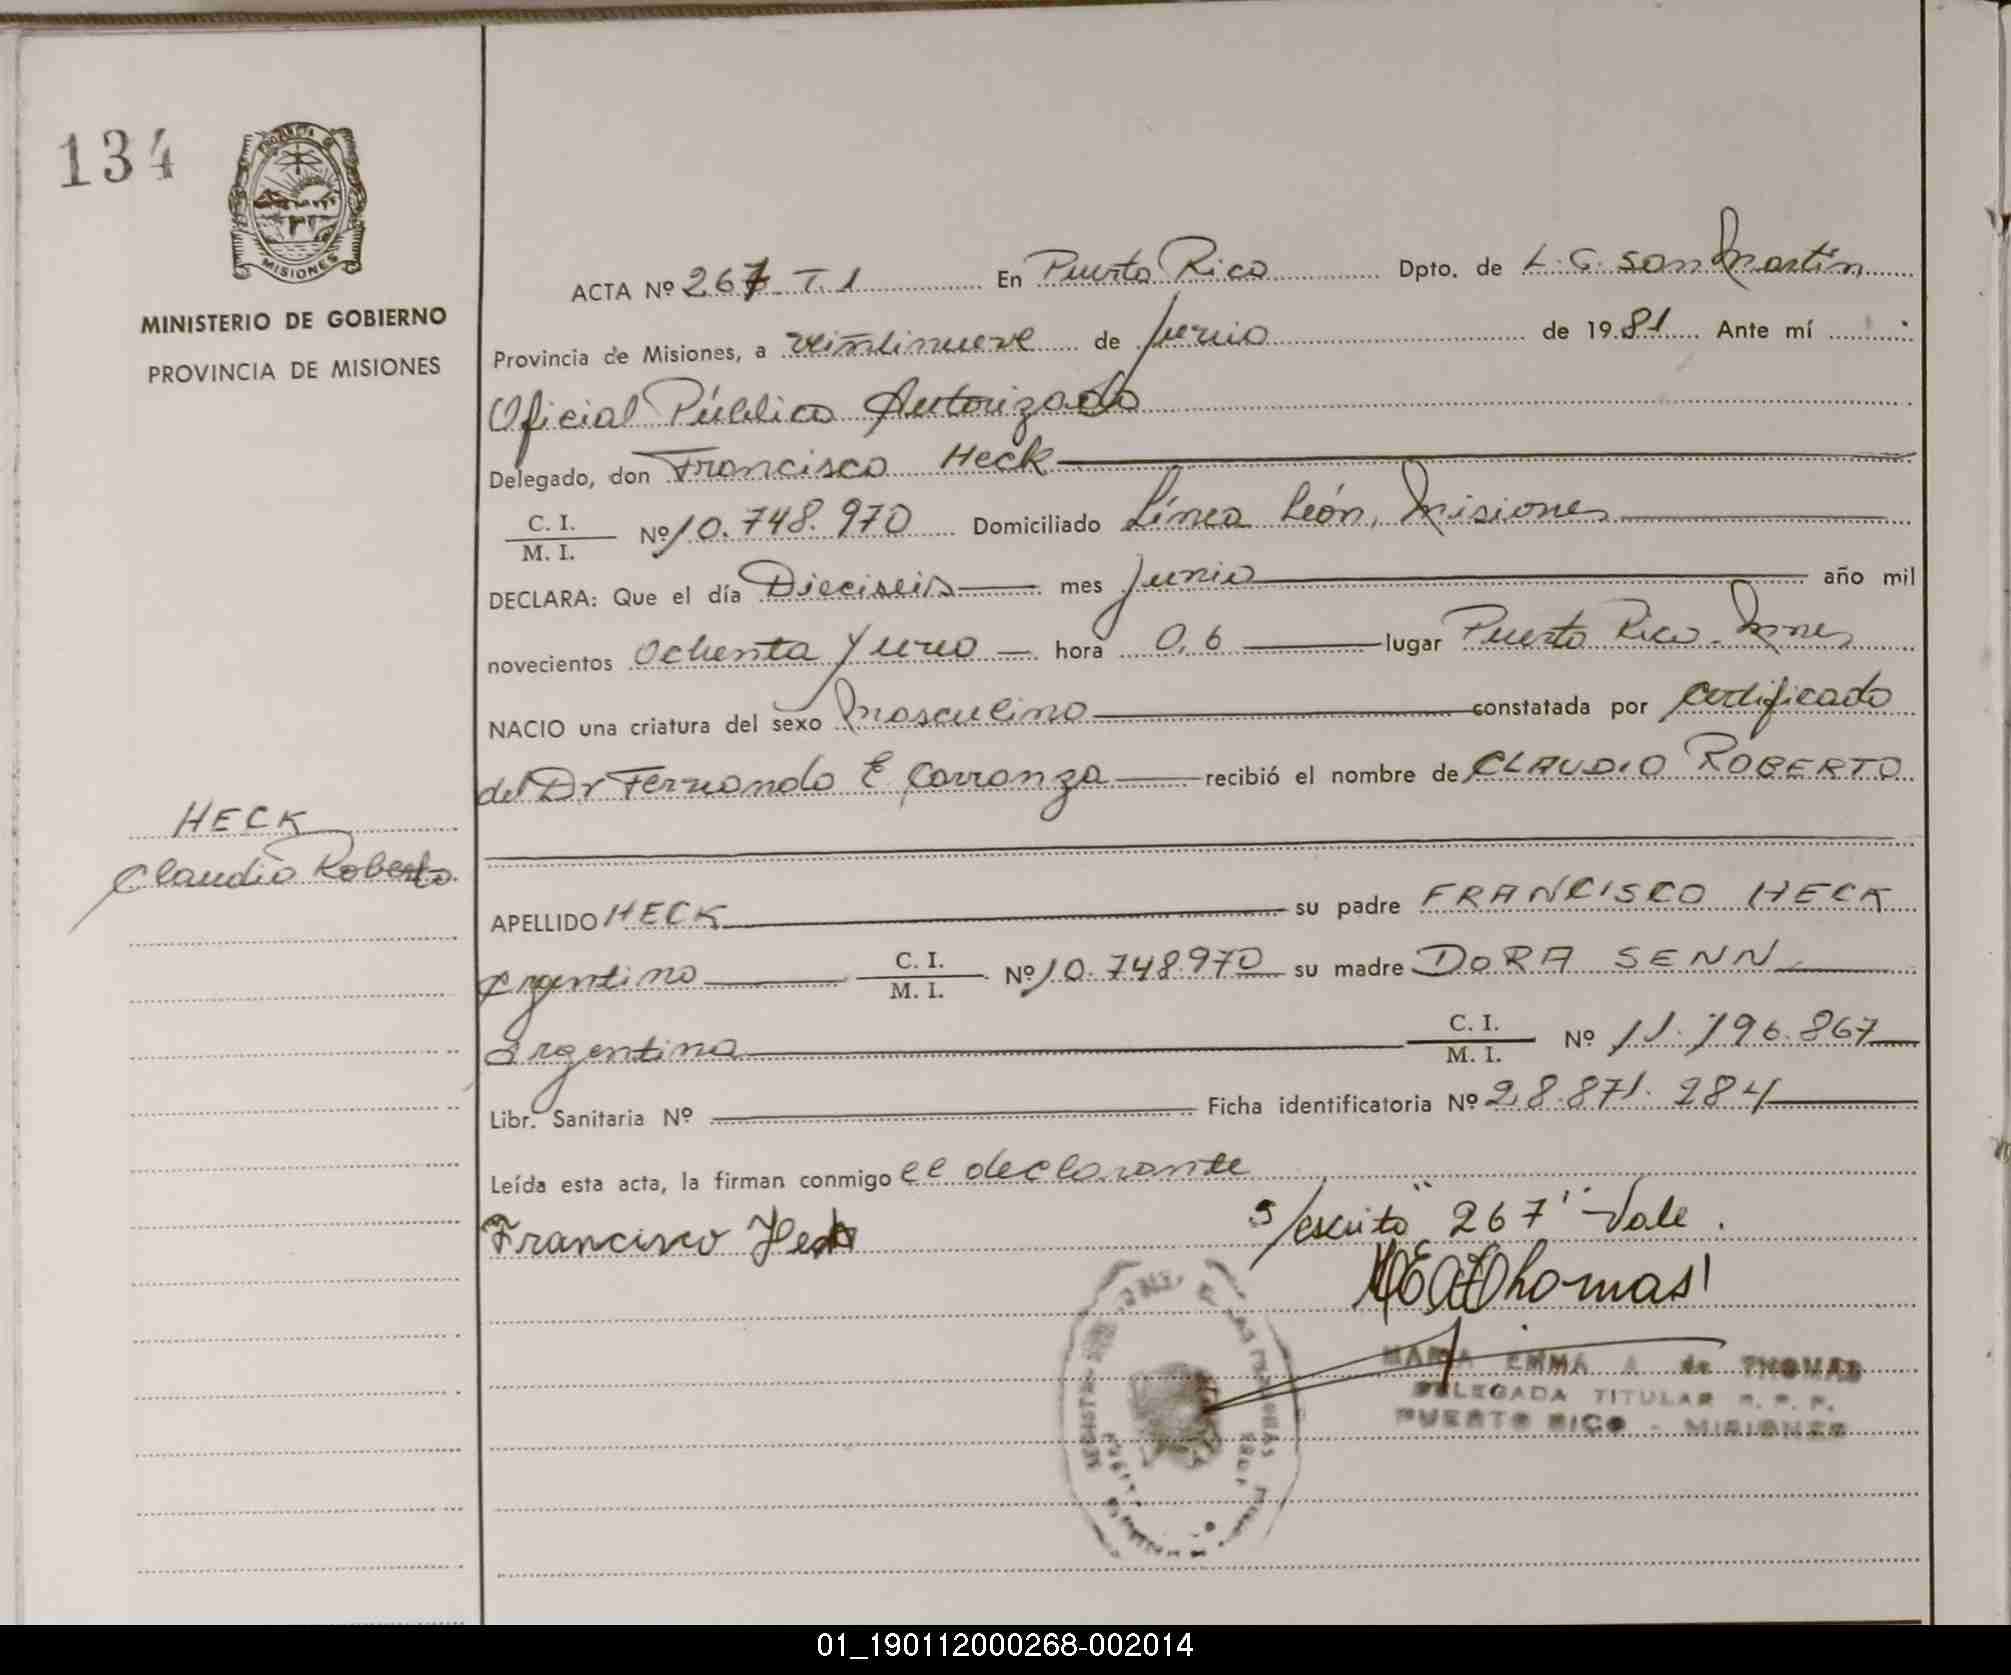 134
MISIONES
MINISTERIO DE GOBIERNO
PROVINCIA DE MISIONES
HECK
Claudio Roberto
ACTA Nº 267 T.1 En Puerto Rico Dpto. de L.G. San Martín
Provincia de Misiones, a veintinueve de junio de 1981 Ante mí
Oficial Público Autorizado
Delegado, don Francisco Heck
C. I.
M. I. Nº 10.748.970 Domiciliado Línea León, Misiones
DECLARA: Que el día Dieciseis mes junio año mil
novecientos Ochenta y uno hora 0,6 lugar Puerto Rico - Mnes
NACIO una criatura del sexo Masculino constatada por certificado
del Dr Fernando E Carranza recibió el nombre de CLAUDIO ROBERTO
APELLIDO HECK su padre FRANCISCO HECK
argentino C. I.
M. I. Nº 10.748.970 su madre DORA SENN
argentina C. I.
M. I. Nº 11.196.867
Libr. Sanitaria Nº Ficha identificatoria Nº 28.871.284
Leída esta acta, la firman conmigo el declarante
Francisco Heck s/escrito "267" Vale.
MEAdThomas
MARIA EMMA A de THOMAS
DELEGADA TITULAR R. P. P.
PUERTO RICO - MISIONES
01_190112000268-002014